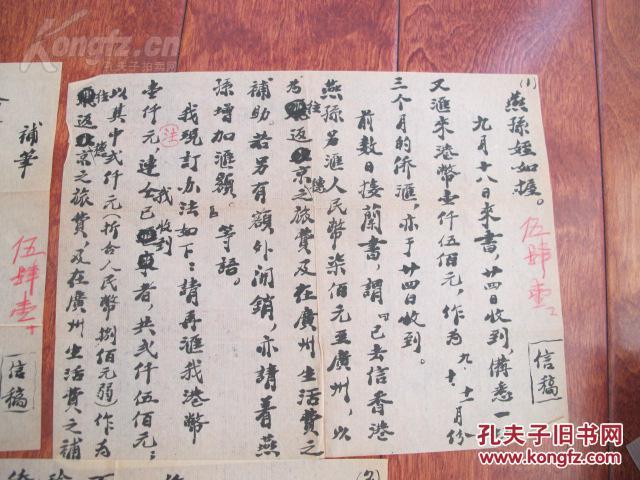 (1)
燕孫姪如握。
九月十八日來書，廿四日收到，備悉一
又滙來港幣壹仟伍佰元，作為九、十、十一月份
三个月的侨滙，亦于廿四日收到。
前数日接蘭書，謂「已去信香港
燕孫另滙人民幣柒佰元至廣州，以
為往返京穗之旅費及在廣州生活費之
補助。若另有額外開銷，亦請着燕
孫增加滙額。」等語。
我現訂办法如下：請再滙我港幣
壹仟元，連我已收到者，共弍仟伍佰元；
以其中弍仟元（折合人民幣捌佰元弱）作為
往返京穗之旅費，及在廣州生活費之補
伍肆壹
信稿
補筆
伍肆壹
信稿
(2)
Kongfz.com
孔夫子旧书网
孔夫子旧书网
KONGFZ.COM